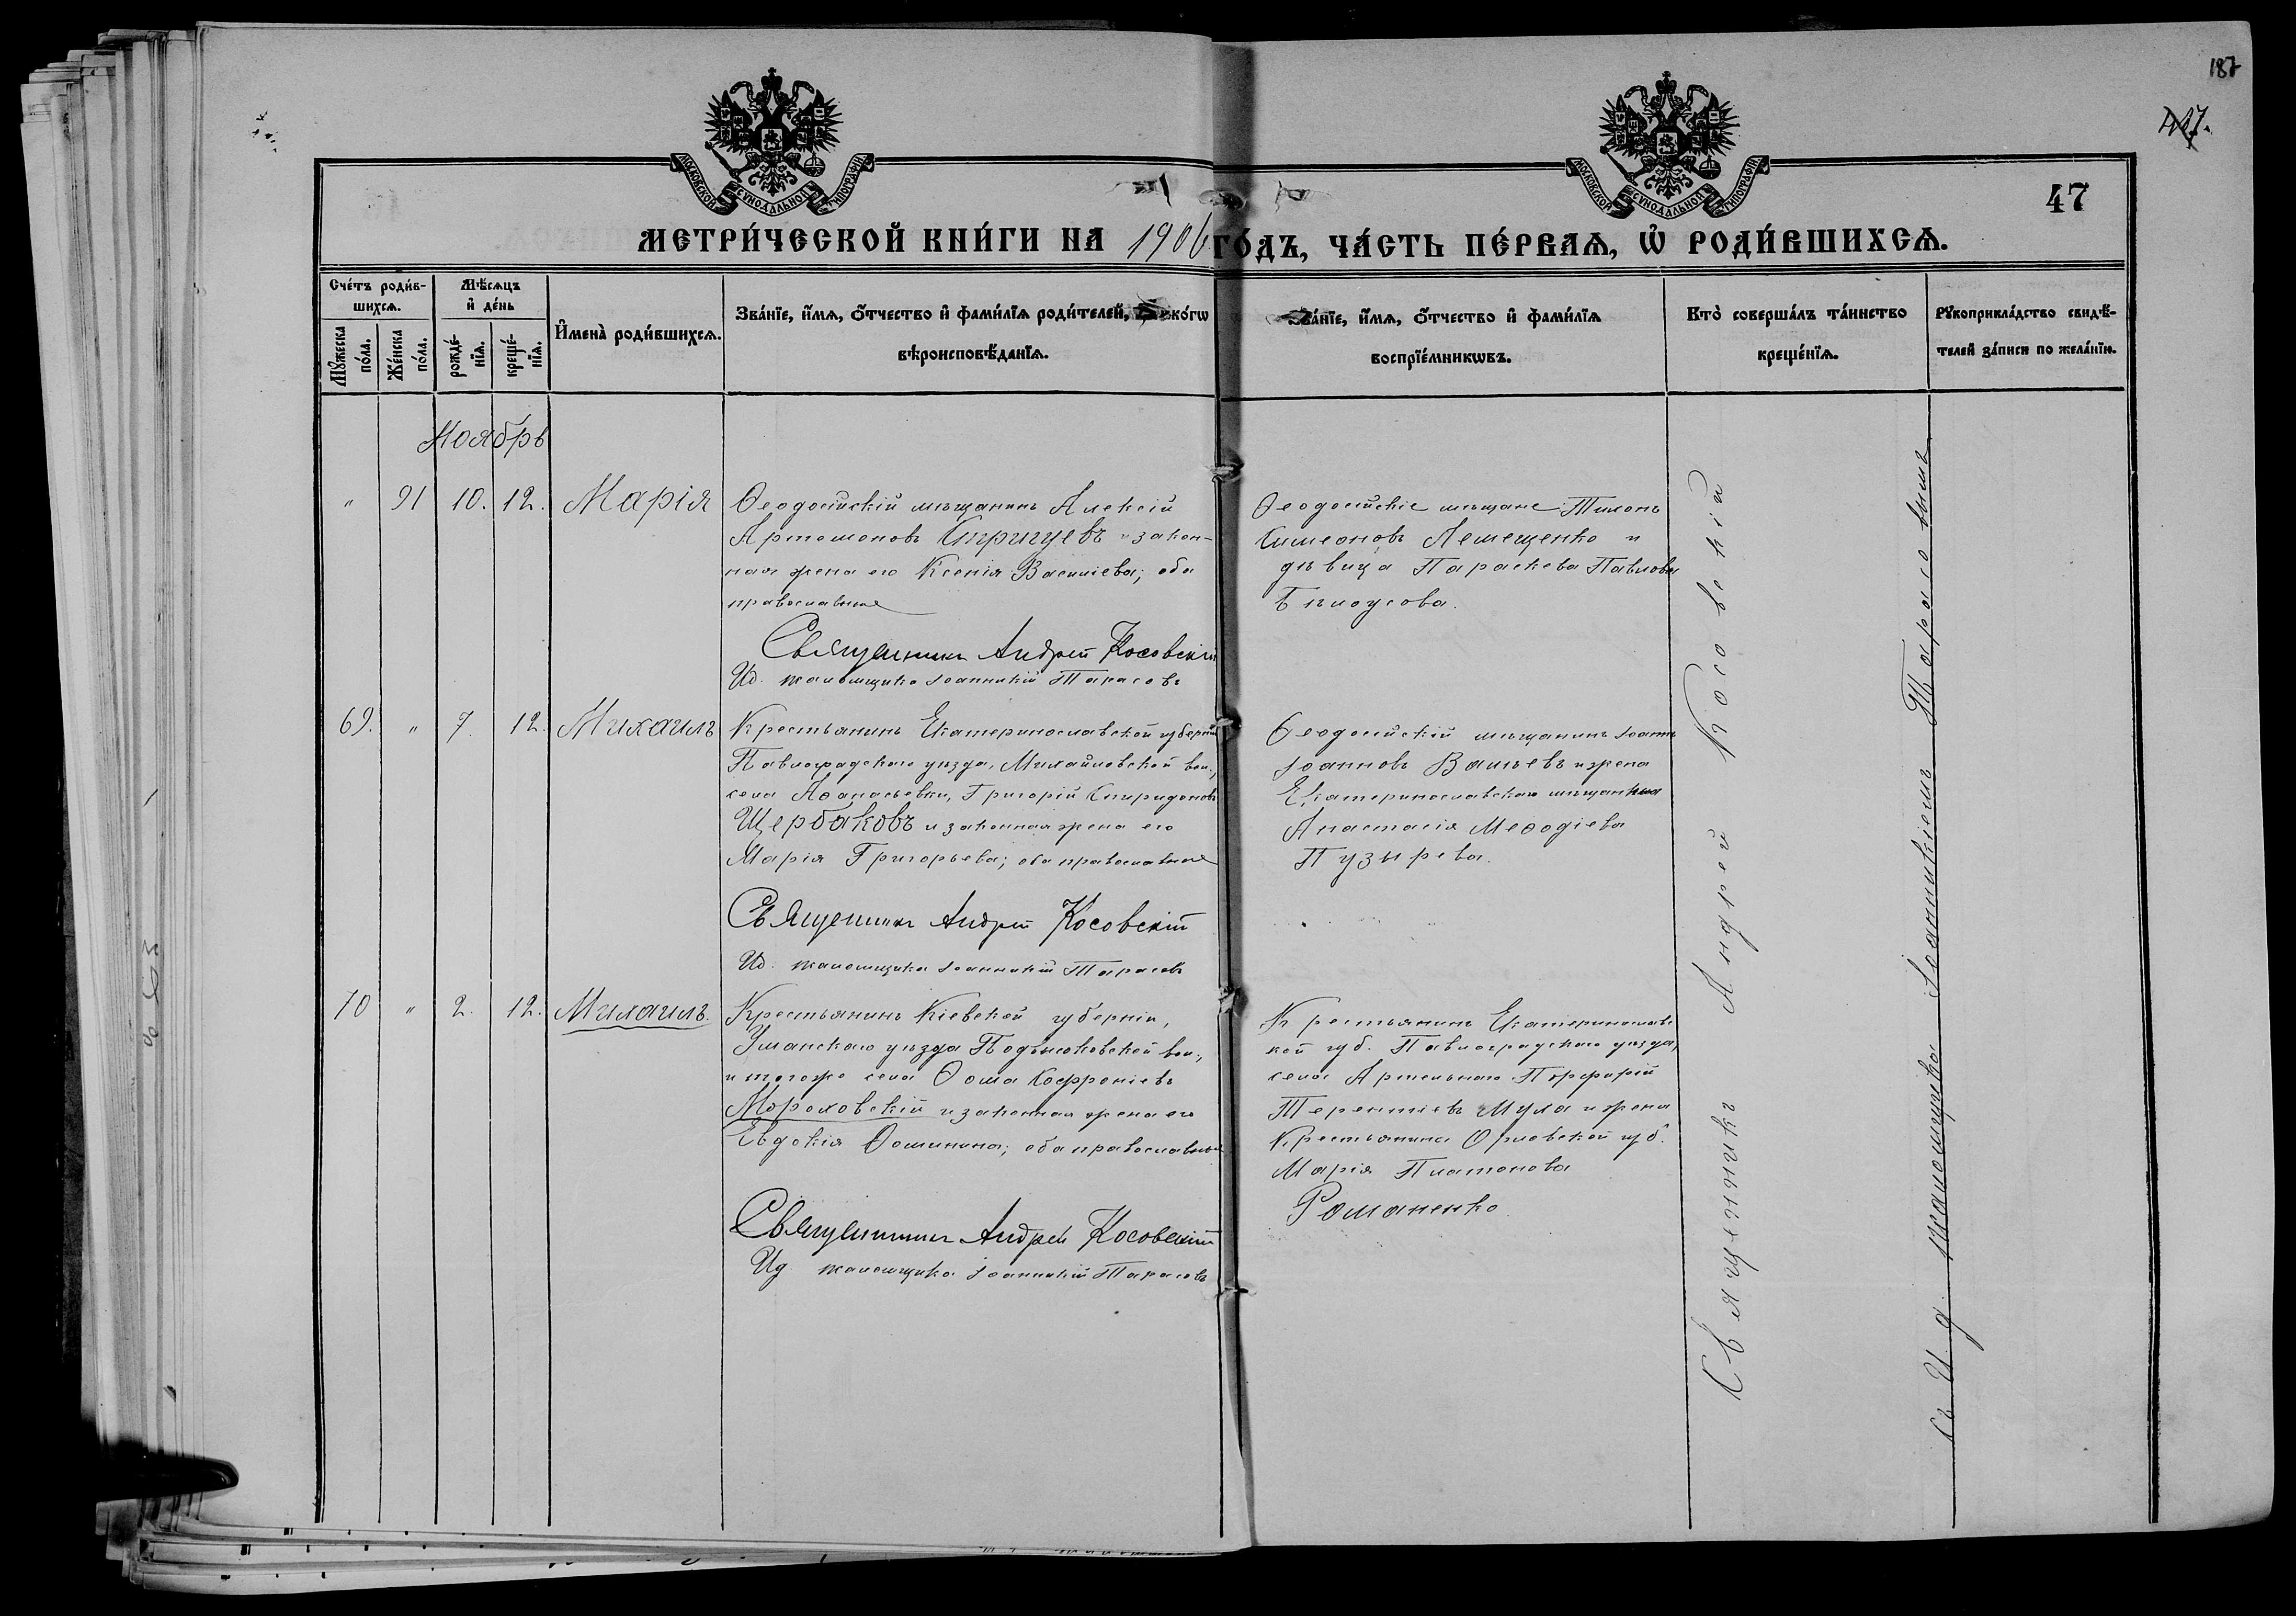 187
47
МОСКОВСКОЙ СѴНОДАЛЬНОЙ ТИПОГРАФІИ
МОСКОВСКОЙ СѴНОДАЛЬНОЙ ТИПОГРАФІИ
МЕТРИ́ЧЕСКОЙ КНИ́ГИ НА 1906 ГО́ДЪ, ЧА́СТЬ ПЕ́РВАѦ, Ѡ҆ РОДИ́ВШИХСѦ.
Сче́тъ роди́в-
шихсѧ.
Мѣ́сѧцъ
и҆ де́нь
Мꙋ́жеска
по́ла.
Же́нска
по́ла.
рожде́-
нїѧ.
креще́-
нїѧ.
И҆мена̀ роди́вшихсѧ.
Зва́нїе, и҆́мѧ, ѻ҆́тчество и҆ фами́лїѧ роди́телей, и҆ како́гѡ
вѣроисповѣ́данїѧ.
Зва́нїе, и҆́мѧ, ѻ҆́тчество и҆ фами́лїѧ
воспрїе́мникѡвъ.
Кто̀ соверша́лъ та́инство
креще́нїѧ.
Рꙋкоприкла́дство свидѣ́-
телей за́писи по жела́нїю.
Ноябрь
" 91 10. 12. Марія
Ѳеодосійскій мѣщанинъ Алексій
Артемоновъ Стригцевъ и закон-
ная жена его Ксенія Василіева; оба
православные
Священникъ Андрей Косовскій
Ид. псаломщика Іоанникій Тарасовъ
Ѳеодосійскіе мѣщане: Тихонъ
Симеоновъ Лемещенко и
дѣвица Параскева Павлова
Бѣлоусова.
69. " 7. 12. Михаилъ
Крестьянинъ Екатеринославской губерніи
Павлоградскаго уѣзда, Михайловской вол.,
села Аѳанасьевки, Григорій Спиридоновъ
Щербаковъ и законная жена его
Марія Григорьева; оба православные
Священникъ Андрей Косовскій
Ид. псаломщика Іоанникій Тарасовъ
Ѳеодосійскій мѣщанинъ Іоаннъ
Іоанновъ Вальевъ и жена
Екатеринославскаго мѣщанина
Анастасія Меѳодіева
Пузырева.
70 " 2. 12. Михаилъ.
Крестьянинъ Кіевской губерніи,
Уманскаго уѣзда Подвысоковской вол.,
и тогоже села Ѳома Софроніевъ
Мороховскій и законная жена его
Евдокія Ѳоминична; оба православные
Священникъ Андрей Косовскій
Ид. псаломщика Іоанникій Тарасовъ
Крестьянинъ Екатеринослав-
ской губ. Павлоградскаго уѣзда,
села Артельнаго Порфирій
Терентіевъ Мула и жена
Крестьянина Орловской губ.
Марія Платонова
Романенко
Священникъ Андрей Косовскій
съ И. д. псаломщика Іоанникіемъ Тарасовымъ